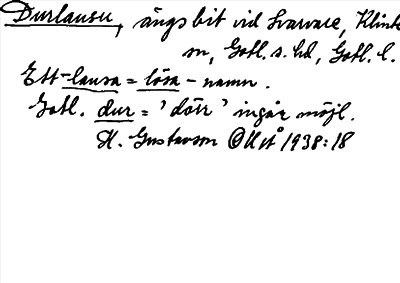 Durlausu, ängsbit vid Svarvare, Klinte
sn, Gotl. s. hd, Gotl. l.
Ett -lausa = lösa - namn.
Gotl. dur = 'dörr' ingår möjl.
H. Gustavson 1938:18